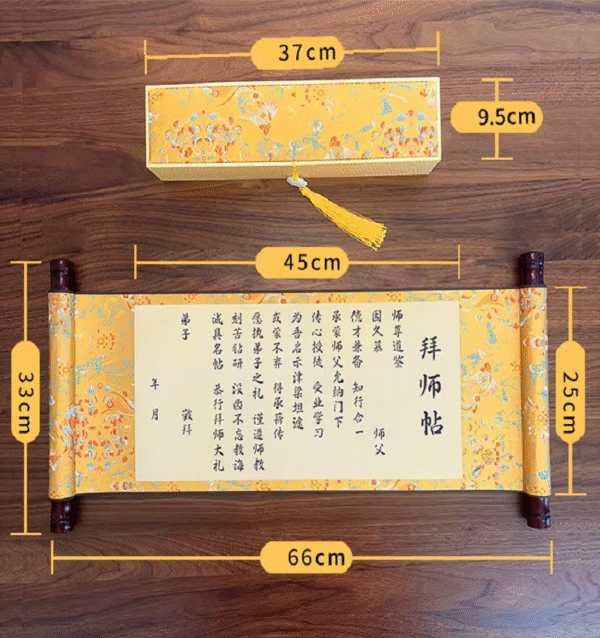 37cm
9.5cm
45cm
33cm
25cm
拜师帖
师尊道鉴
因久慕 师父
德才兼备 知行合一
承蒙师父允纳门下
传心授徒 受业学习
为吾启示津梁坦途
或蒙不弃 得承薪传
愿执弟子之礼 谨遵师教
刻苦钻研 没齿不忘教诲
诚具名帖 恭行拜师大礼
弟子 敬拜
年 月
66cm